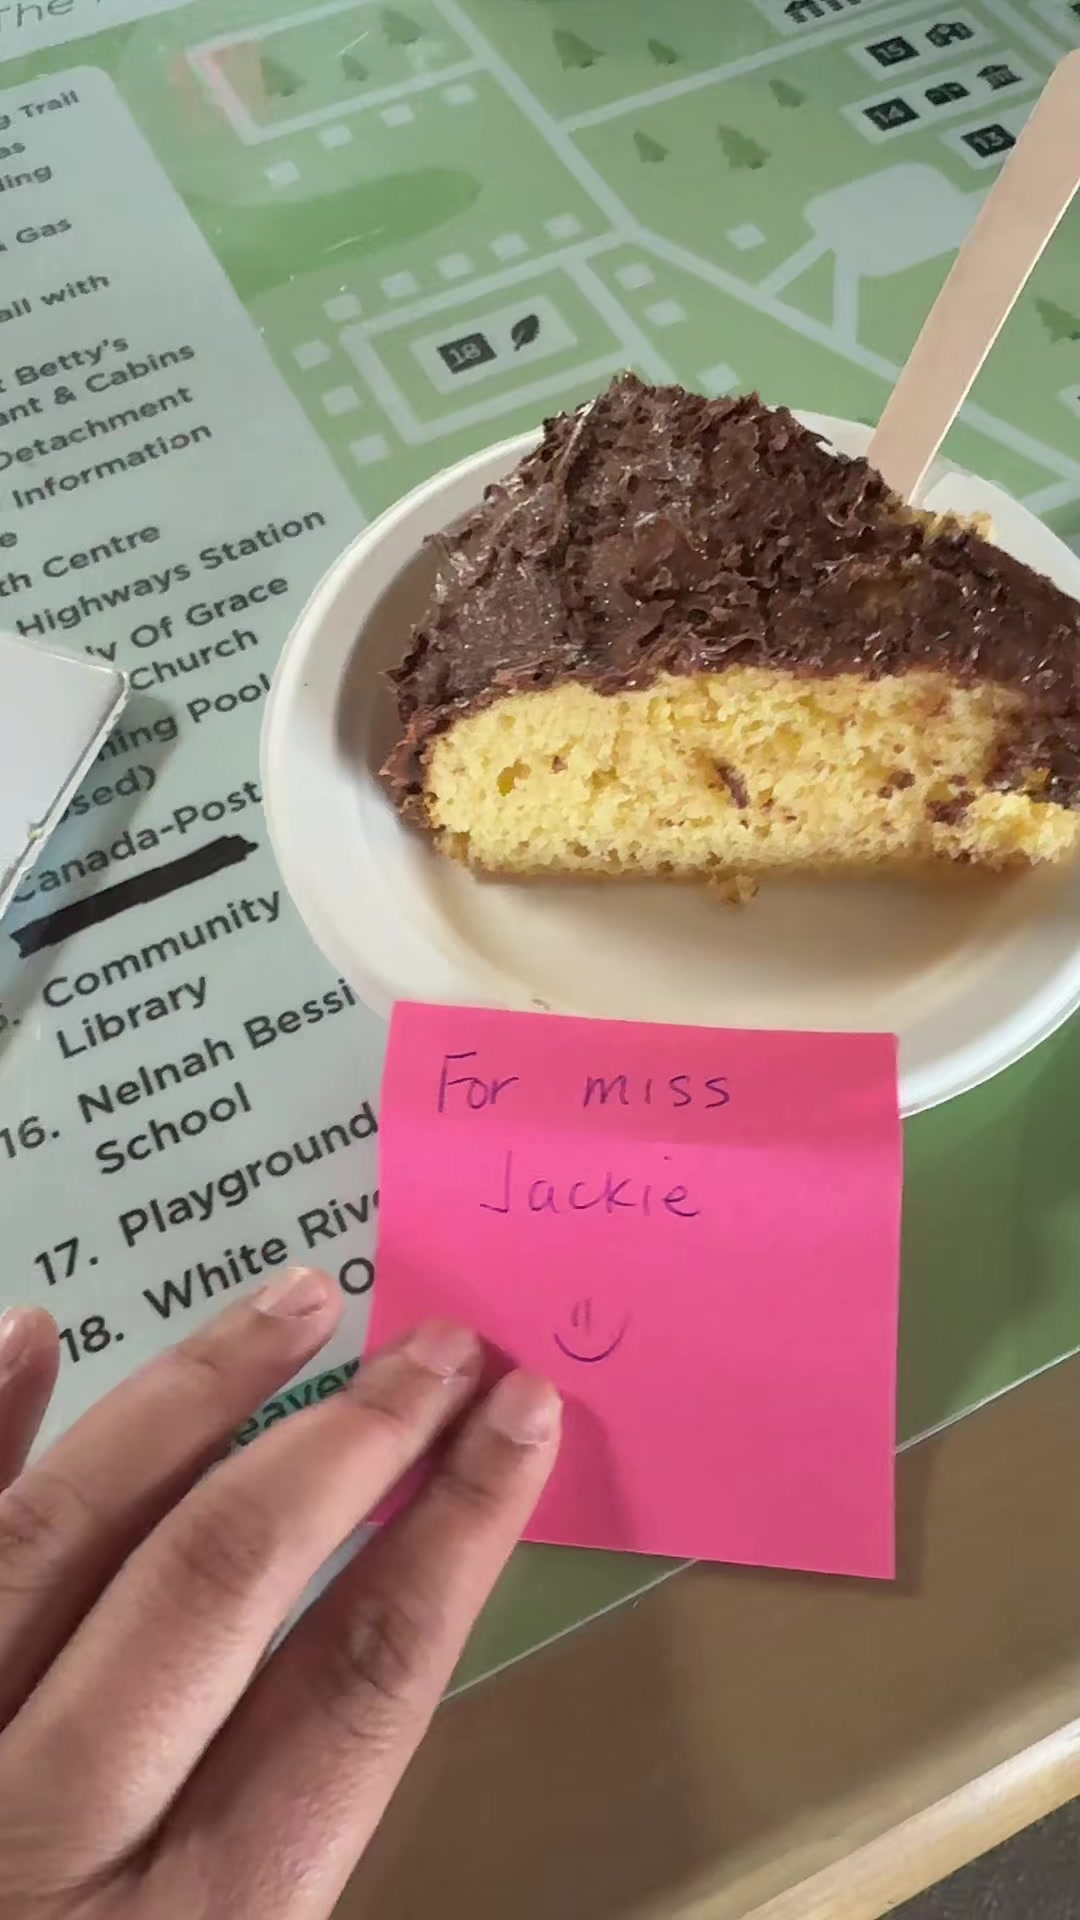 The
Trail
as
ling
& Gas
ail with
Betty's
ant & Cabins
Detachment
Information
e
th Centre
Highways Station
y Of Grace
Church
ning Pool
sed)
Canada-Post
Community
Library
16. Nelnah Bessi
School
17. Playground
18. White Riv
O
eaver
15
14
13
18
For miss
Jackie